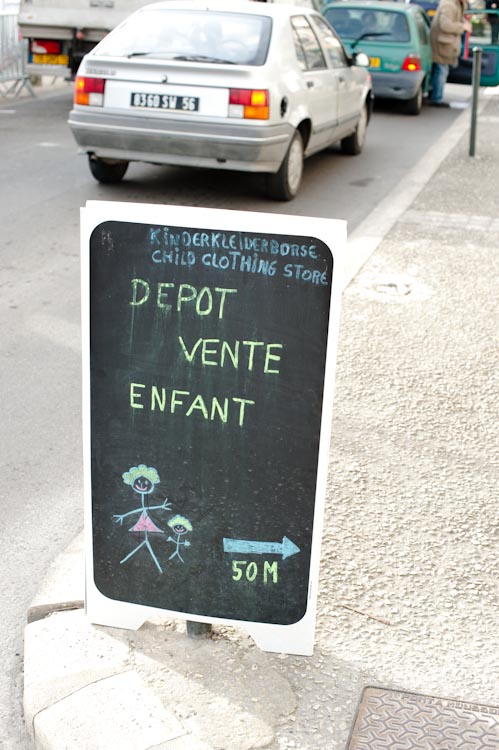 8360 SW 56
KINDERKLEIDERBORSE
CHILD CLOTHING STORE
DEPOT
VENTE
ENFANT
50M